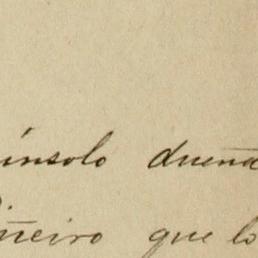 ínsolo duena
ñeiro que lo